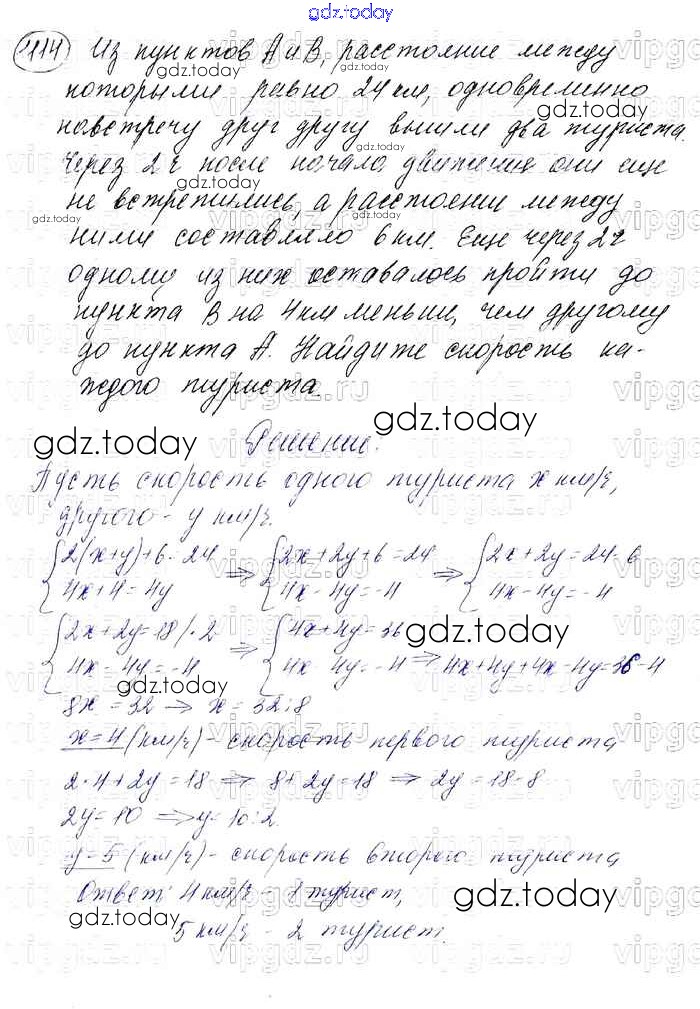 gdz.today
1114 Из пунктов А и В, расстояние между
которыми равно 24 км, одновременно
навстречу друг другу вышли два туриста.
Через 2 ч после начала движения они еще
не встретились, а расстоении между
ними составляло 6 км. Еще через 2 ч
одному из них оставалось пройти до
пункта В на 4 км меньше, чем другому
до пункта А. Найдите скорость ка-
ждого туриста.
Решение.
Пусть скорость одного туриста x км/ч,
другого - y км/ч.
{2(x+y)+6=24 ⇒ {2x+2y+6=24 ⇒ {2x+2y=24-6
{4x+4=4y {4x-4y=-4 {4x-4y=-4
{2x+2y=18 |·2 ⇒ {4x+4y=36
{4x-4y=-4 {4x-4y=-4 ⇒ 4x+4y+4x-4y=36-4
8x=32 ⇒ x=32:8
x=4 (км/ч) - скорость первого туриста
2·4+2y=18 ⇒ 8+2y=18 ⇒ 2y=18-8
2y=10 ⇒ y=10:2
y=5 (км/ч) - скорость второго туриста
Ответ: 4 км/ч - 1 турист,
5 км/ч - 2 турист.